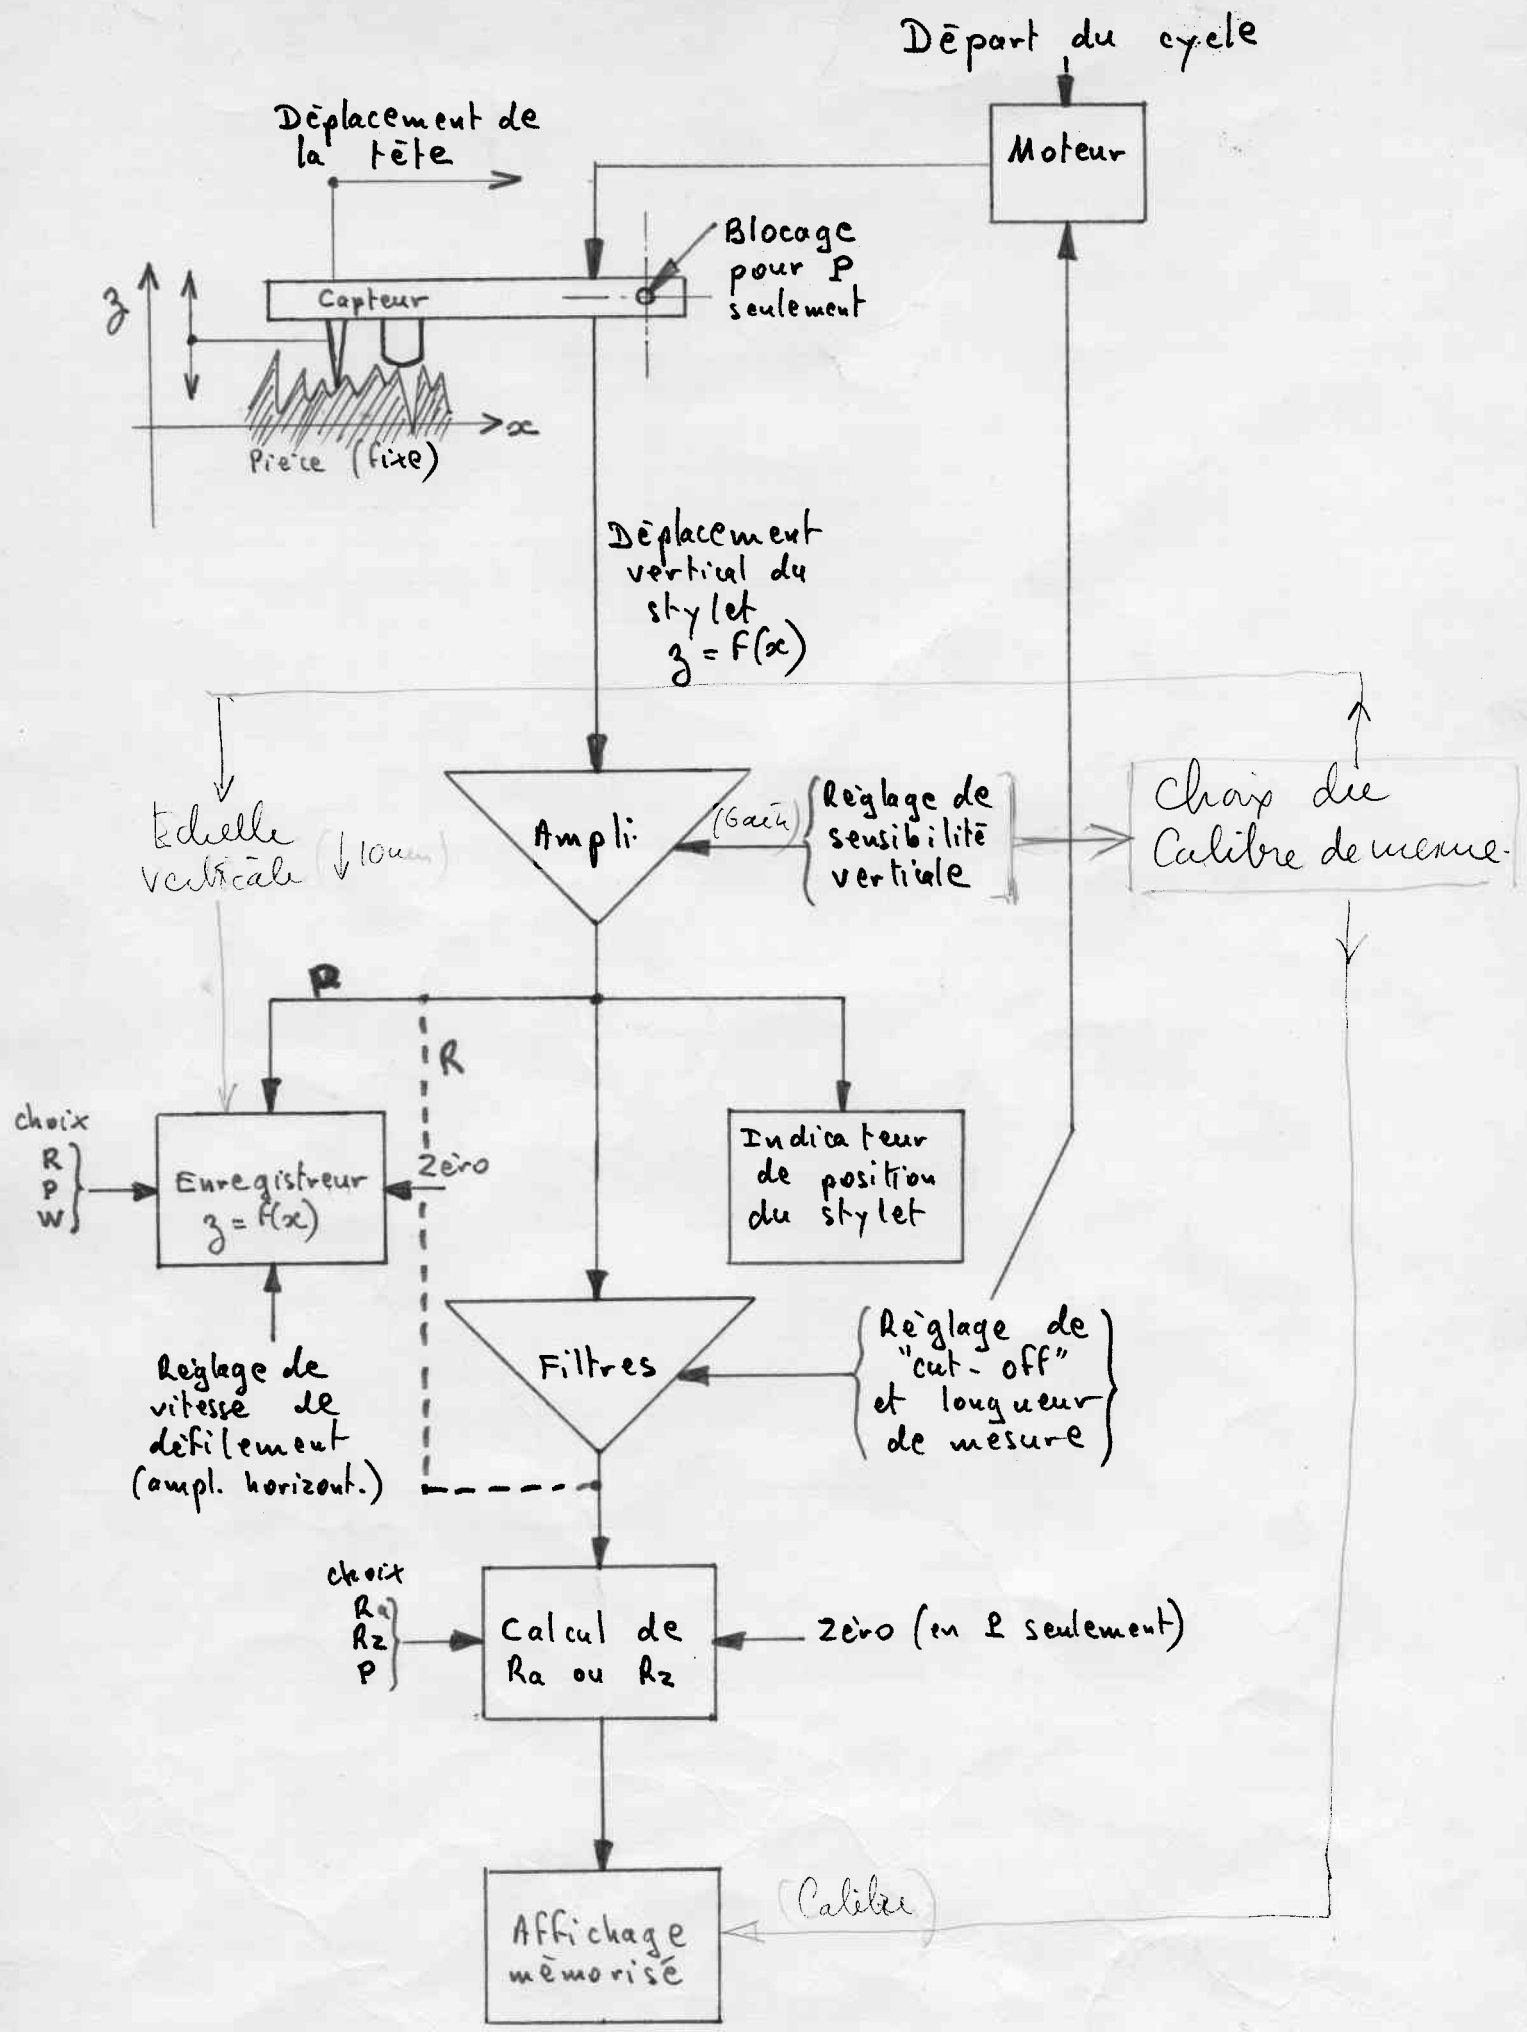 Départ du cycle
Déplacement de
la tête
Moteur
Blocage
pour P
seulement
z
Capteur
x
Pièce (fixe)
Déplacement
vertical du
stylet
z = f(x)
Echelle
verticale
Ampli.
(Gain)
Réglage de
sensibilité
verticale
Choix du
Calibre de
P
R
choix
R
P
W
Enregistreur
z = f(x)
Zéro
Indicateur
de position
du stylet
Réglage de
vitesse de
défilement
(ampl. horizont.)
Filtres
Réglage de
"cut-off"
et longueur
de mesure
choix
Ra
Rz
P
Calcul de
Ra ou Rz
Zéro (en P seulement)
Affichage
mémorisé
(Calibre)